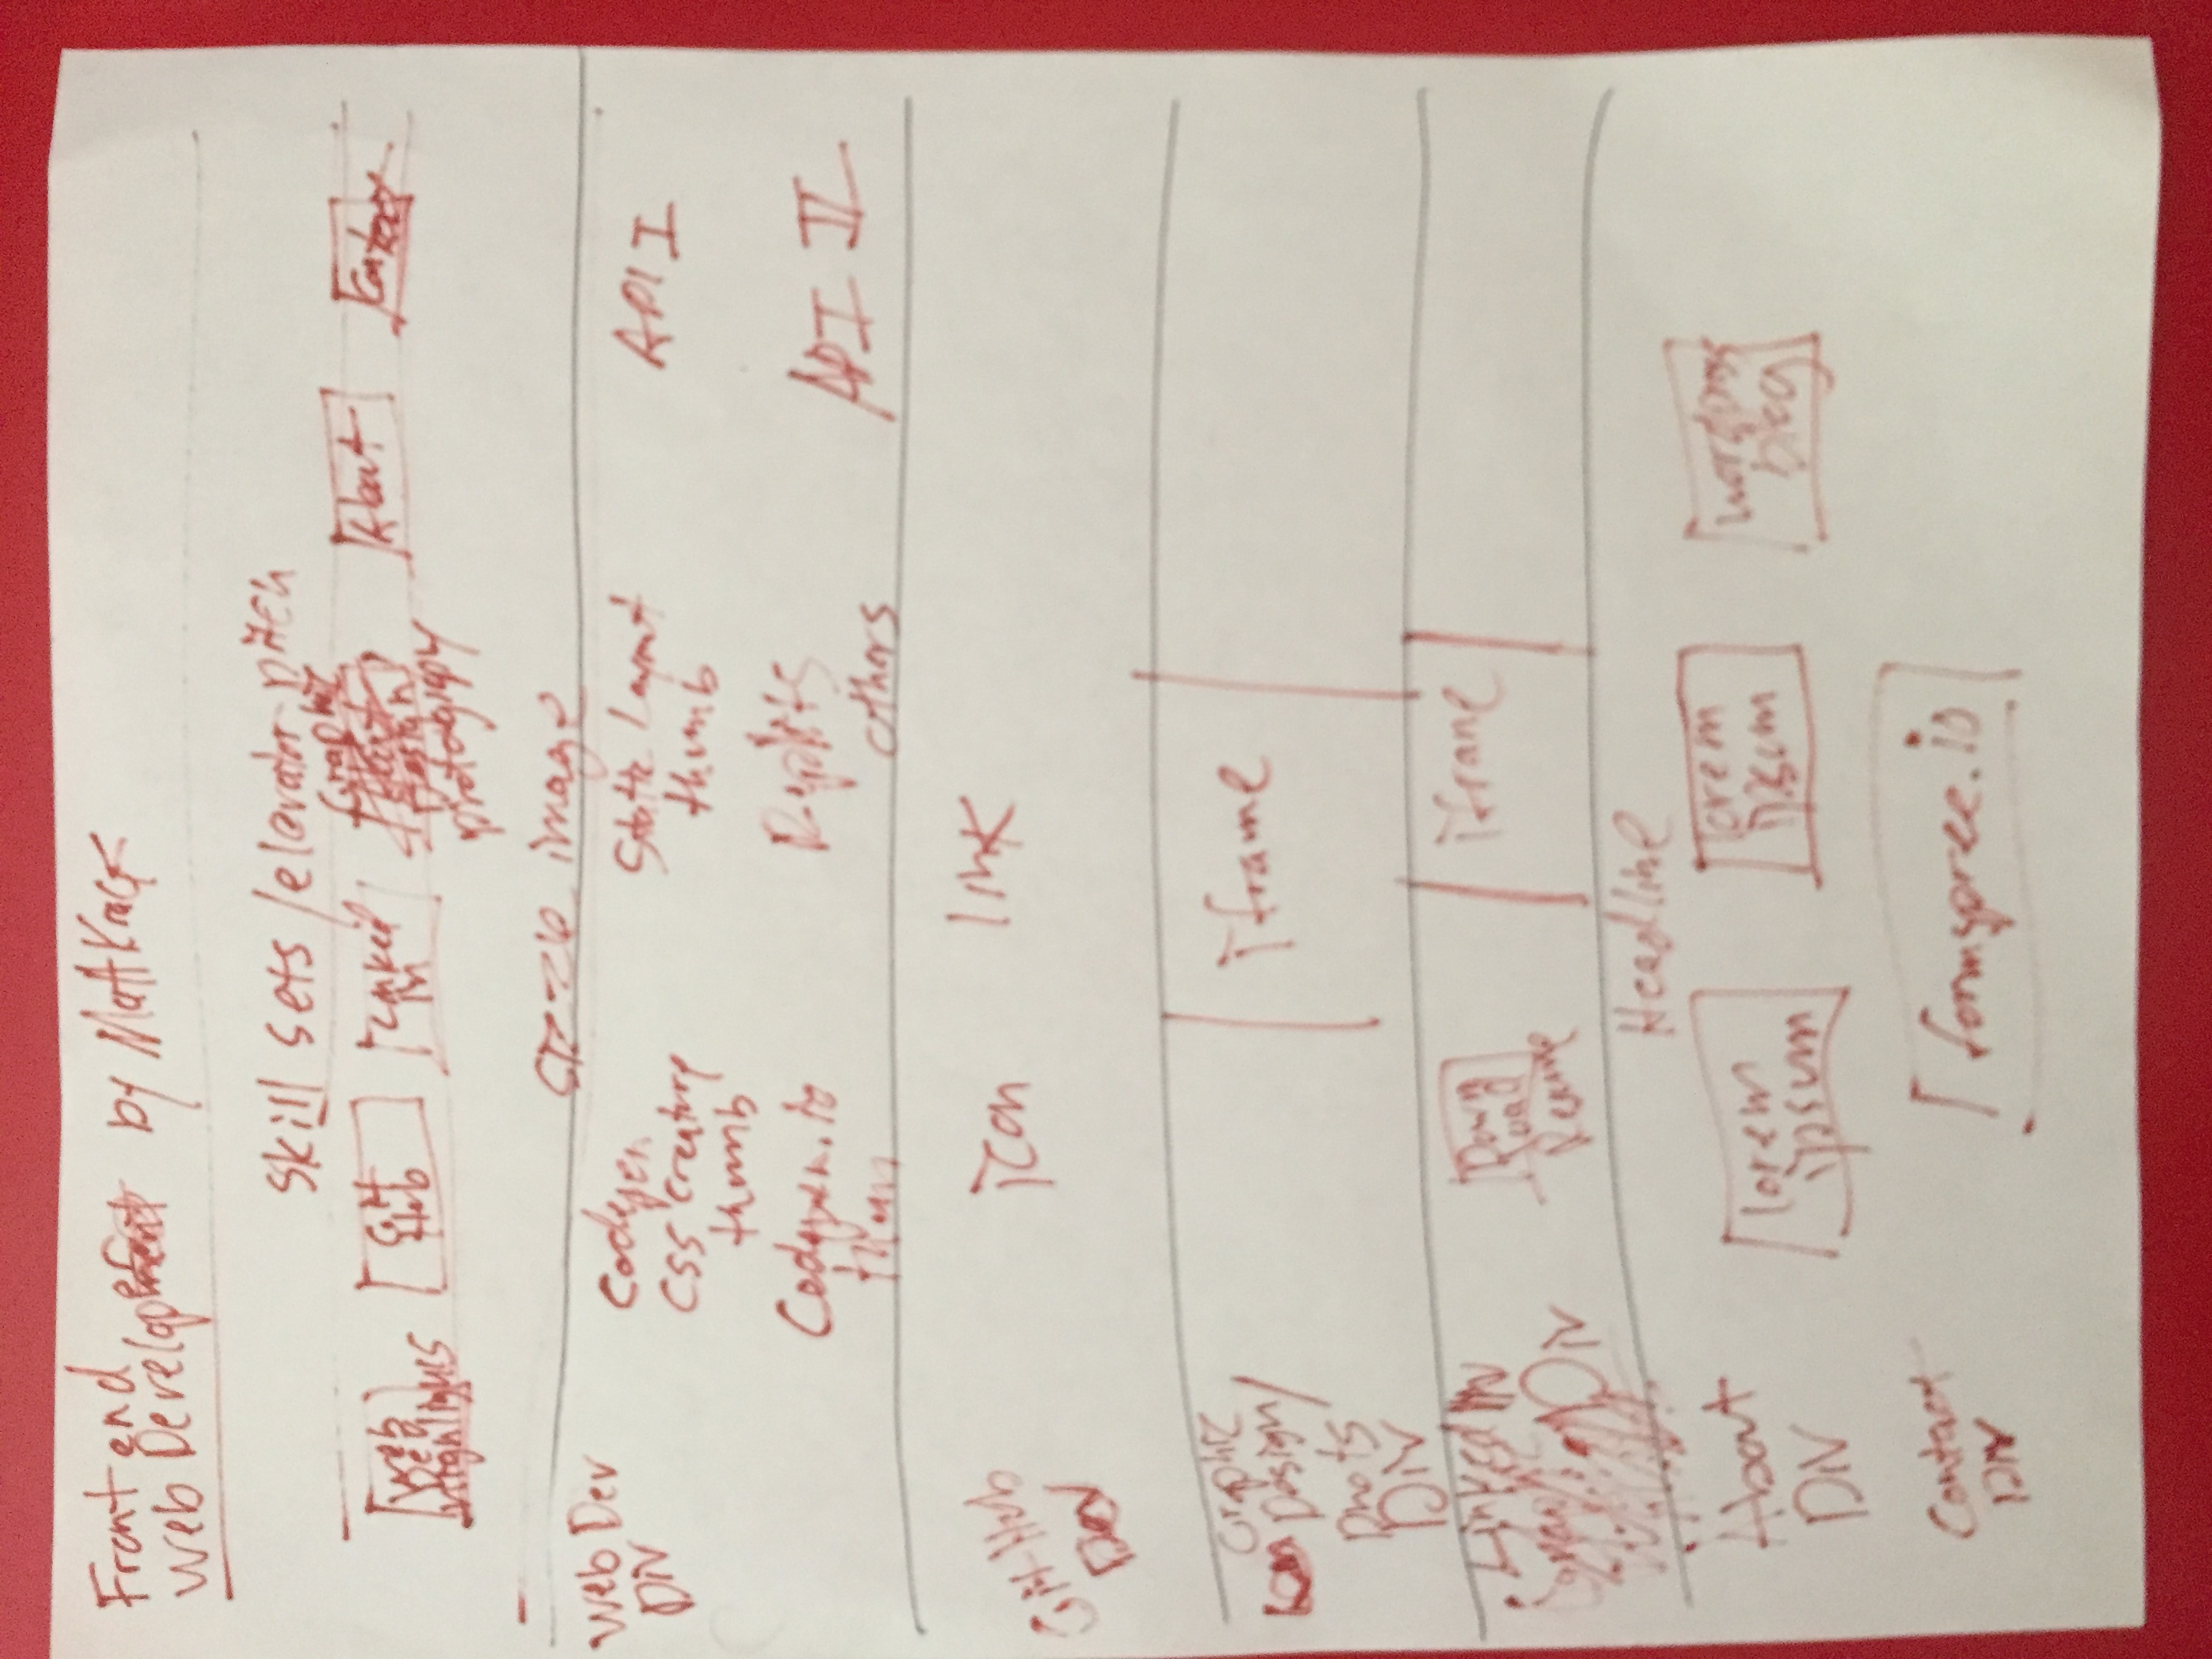 Front end
Web Development by Matt
skill sets / elevator pitch
Web Dev Highlights
Git Hub
Linked In
Graphic Design photography
About
Contact
image
Web Dev
Div
Codepen
CSS creature
thumb
Static Layout
thumb
API I
Codepen.io
Replits
others
API II
GitHub
icon
link
Graphic
Design/
Phots
Div
iframe
LinkedIn
Div
Down
load
Resume
iframe
Headline
About
Div
lorem
ipsum
lorem
ipsum
wordpress
blog
Contact
Div
formspree.io